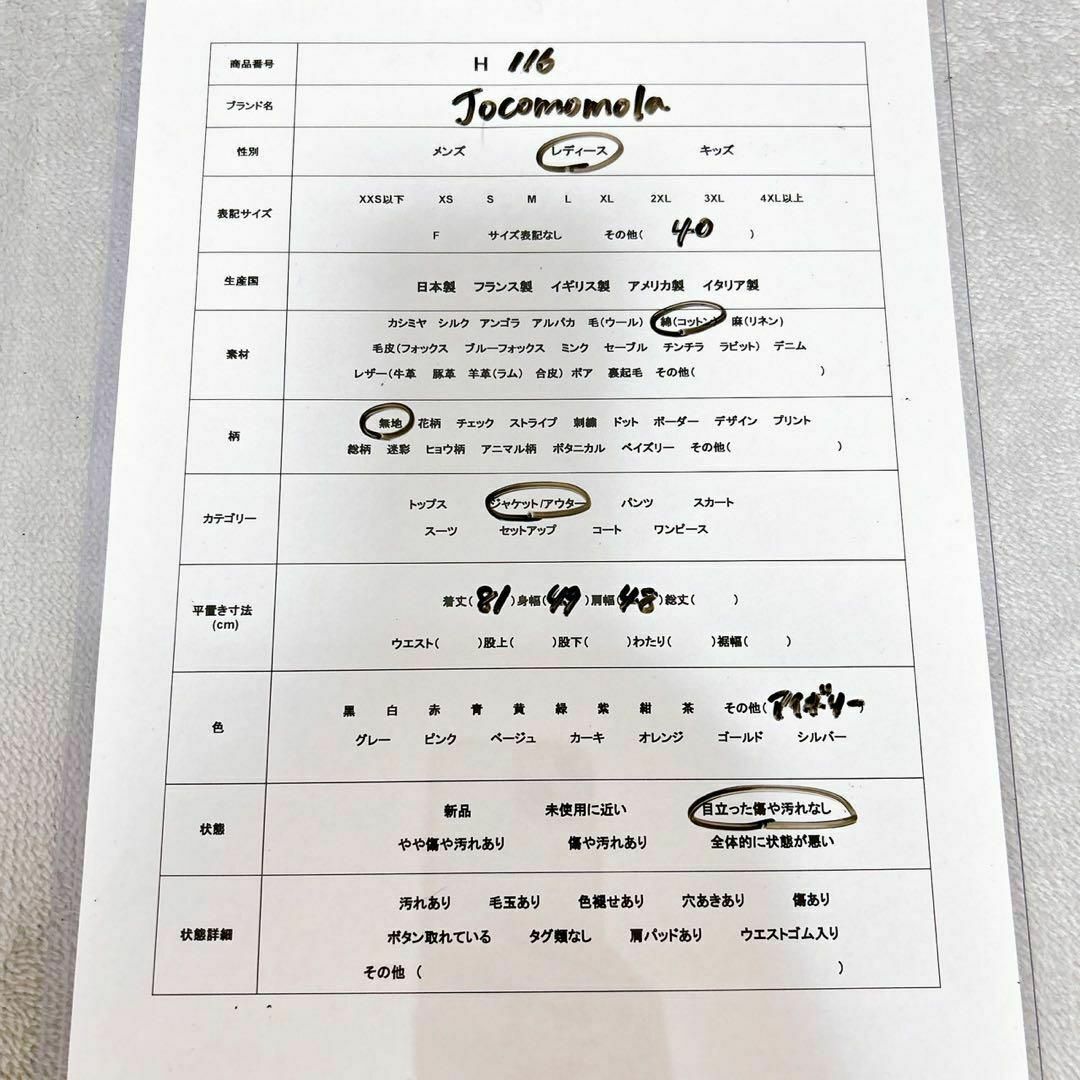 商品番号 H 116
ブランド名 Jocomomola
性別 メンズ レディース キッズ
表記サイズ XXS以下 XS S M L XL 2XL 3XL 4XL以上
F サイズ表記なし その他( 40 )
生産国 日本製 フランス製 イギリス製 アメリカ製 イタリア製
カシミヤ シルク アンゴラ アルパカ 毛(ウール) 綿(コットン) 麻(リネン)
素材 毛皮(フォックス ブルーフォックス ミンク セーブル チンチラ ラビット) デニム
レザー(牛革 豚革 羊革(ラム) 合皮) ボア 裏起毛 その他( )
柄 無地 花柄 チェック ストライプ 刺繍 ドット ボーダー デザイン プリント
総柄 迷彩 ヒョウ柄 アニマル柄 ボタニカル ペイズリー その他( )
カテゴリー トップス ジャケット/アウター パンツ スカート
スーツ セットアップ コート ワンピース
平置き寸法 (cm) 着丈( 81 )身幅( 49 )肩幅( 48 )総丈( )
ウエスト( )股上( )股下( )わたり( )裾幅( )
色 黒 白 赤 青 黄 緑 紫 紺 茶 その他( アイボリー )
グレー ピンク ベージュ カーキ オレンジ ゴールド シルバー
状態 新品 未使用に近い 目立った傷や汚れなし
やや傷や汚れあり 傷や汚れあり 全体的に状態が悪い
状態詳細 汚れあり 毛玉あり 色褪せあり 穴あきあり 傷あり
ボタン取れている タグ類なし 肩パッドあり ウエストゴム入り
その他 ( )